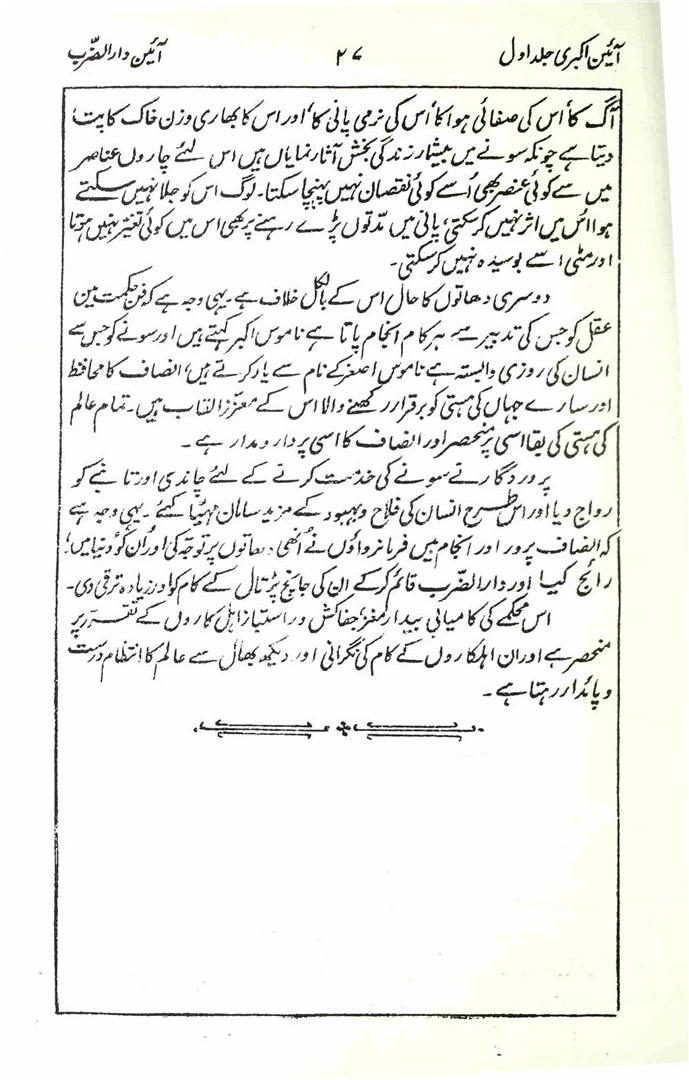 آئین اکبری جلد اول ۲۷ آئین دار الضرب
آگ کا، اُس کی صفائی ہوا کا، اُس کی نرمی پانی کا، اور اس کا بھاری وزن خاک کا پتہ
دیتا ہے چونکہ سونے میں بیشمار زندگی بخش آثار نمایاں ہیں اس لئے چاروں عناصر
میں سے کوئی عنصر بھی اُسے کوئی نقصان نہیں پہنچا سکتا۔ لوگ اس کو جلا نہیں سکتے
ہوا اس میں اثر نہیں کرسکتی، پانی میں مدّتوں پڑے رہنے پر بھی اس میں کوئی تغیّر نہیں ہوتا
اور مٹی اسے بوسیدہ نہیں کرسکتی۔
دوسری دھاتوں کا حال اس کے بالکل خلاف ہے۔ یہی وجہ ہے کہ فن حکمت میں
عقل کو جس کی تدبیر سے ہر کام انجام پاتا ہے ناموس اکبر کہتے ہیں اور سونے کو جس سے
انسان کی روزی وابستہ ہے ناموس اصغر کے نام سے یاد کرتے ہیں، انصاف کا محافظ
اور سارے جہاں کی ہستی کو برقرار رکھنے والا اس کے معزّز القاب ہیں۔ تمام عالم
کی ہستی کی بقا اسی پر منحصر اور انصاف کا اسی پر دار و مدار ہے۔
پروردگار نے سونے کی خدمت کرنے کے لئے چاندی اور تانبے کو
رواج دیا اور اس طرح انسان کی فلاح و بہبود کے مزید سامان مہیّا کئے۔ یہی وجہ ہے
کہ انصاف پرور اور انجام میں فرمانرواؤں نے اُنھی دھاتوں پر توجہ کی اور ان کو دنیا میں
رائج کیا اور دار الضرب قائم کرکے ان کی جانچ پڑتال کے کام کو اور زیادہ ترقی دی۔
اس محکمے کی کامیابی بیدار مغز، جفاکش و راستباز اہل کاروں کے تقرر پر
منحصر ہے اور ان اہلکاروں کے کام کی نگرانی اور دیکھ بھال سے عالم کا انتظام درست
و پائدار رہتا ہے۔